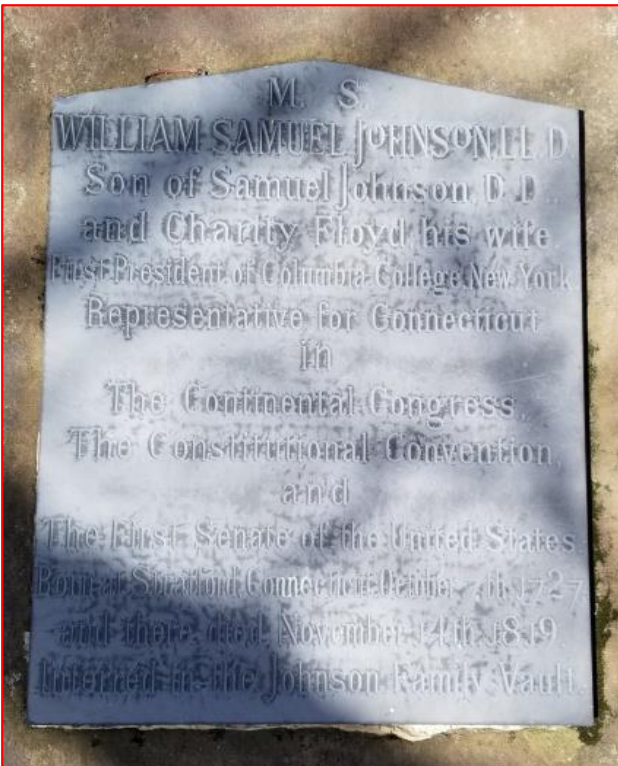 M. S.
WILLIAM SAMUEL JOHNSON, LL.D.
Son of Samuel Johnson, D.D.,
and Charity Floyd, his wife.
First President of Columbia College New York
Representative for Connecticut
in
The Continental Congress,
The Constitutional Convention,
and
The First Senate of the United States.
Born at Stratford, Connecticut October 7th, 1727
and there died November 14th, 1819.
Interred in the Johnson Family Vault.